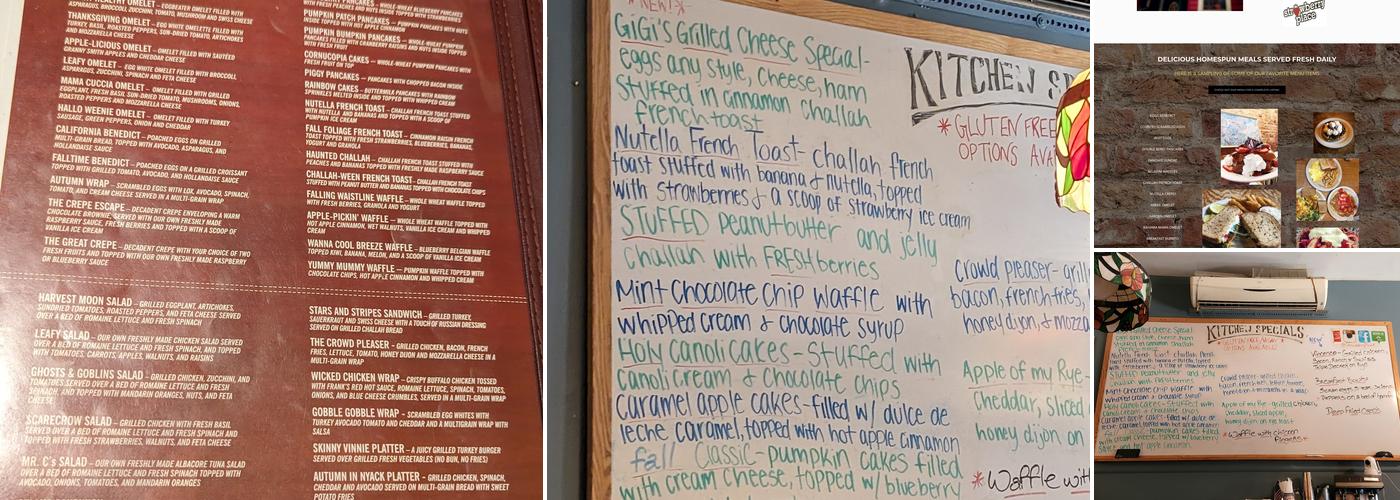 ASPARAGUS, BROCCOLI, ZUCCHINI, TOMATO, MUSHROOM AND SWISS CHEESE
THANKSGIVING OMELET – EGG WHITE OMELETTE FILLED WITH
TURKEY, BASIL, ROASTED PEPPERS, SUN-DRIED TOMATO, ARTICHOKES
AND MOZZARELLA CHEESE
APPLE-LICIOUS OMELET – OMELET FILLED WITH SAUTÉED
GRANNY SMITH APPLES AND CHEDDAR CHEESE
LEAFY OMELET – EGG WHITE OMELET FILLED WITH BROCCOLI,
ASPARAGUS, ZUCCHINI, SPINACH AND FETA CHEESE
MAMA CUCCIA OMELET – OMELET FILLED WITH GRILLED
EGGPLANT, FRESH BASIL, SUN-DRIED TOMATO, MUSHROOMS, ONIONS,
ROASTED PEPPERS AND MOZZARELLA CHEESE
HALLO WEENIE OMELET – OMELET FILLED WITH TURKEY
SAUSAGE, GREEN PEPPERS, ONION AND CHEDDAR
CALIFORNIA BENEDICT – POACHED EGGS ON GRILLED
MULTI-GRAIN BREAD, TOPPED WITH AVOCADO, ASPARAGUS, AND
HOLLANDAISE SAUCE
FALLTIME BENEDICT – POACHED EGGS ON A GRILLED CROISSANT
TOPPED WITH GRILLED TOMATO, AVOCADO, AND HOLLANDAISE SAUCE
AUTUMN WRAP – SCRAMBLED EGGS WITH LOX, AVOCADO, SPINACH,
TOMATO, AND CREAM CHEESE SERVED IN A MULTI-GRAIN WRAP
THE CREPE ESCAPE – DECADENT CREPE ENVELOPING A WARM
CHOCOLATE BROWNIE, SERVED WITH OUR OWN FRESHLY MADE
RASPBERRY SAUCE, FRESH BERRIES AND TOPPED WITH A SCOOP OF
VANILLA ICE CREAM
THE GREAT CREPE – DECADENT CREPE WITH YOUR CHOICE OF TWO
FRESH FRUITS AND TOPPED WITH OUR OWN FRESHLY MADE RASPBERRY
OR BLUEBERRY SAUCE
HARVEST MOON SALAD – GRILLED EGGPLANT, ARTICHOKES,
SUNDRIED TOMATOES, ROASTED PEPPERS, AND FETA CHEESE SERVED
OVER A BED OF ROMAINE LETTUCE AND FRESH SPINACH
LEAFY SALAD – OUR OWN FRESHLY MADE CHICKEN SALAD SERVED
OVER A BED OF ROMAINE LETTUCE AND FRESH SPINACH, AND TOPPED
WITH TOMATOES, CARROTS, APPLES, WALNUTS, AND RAISINS
GHOSTS & GOBLINS SALAD – GRILLED CHICKEN, ZUCCHINI, AND
TOMATOES SERVED OVER A BED OF ROMAINE LETTUCE AND FRESH
SPINACH, AND TOPPED WITH MANDARIN ORANGES, NUTS, AND FETA
CHEESE
SCARECROW SALAD – GRILLED CHICKEN WITH FRESH BASIL
SERVED OVER A BED OF ROMAINE LETTUCE AND FRESH SPINACH AND
TOPPED WITH FRESH STRAWBERRIES, WALNUTS, AND FETA CHEESE
MR. C's SALAD – OUR OWN FRESHLY MADE ALBACORE TUNA SALAD
OVER A BED OF ROMAINE LETTUCE AND FRESH SPINACH TOPPED WITH
AVOCADO, ONIONS, TOMATOES, AND MANDARIN ORANGES
PUMPKIN PATCH PANCAKES – WHOLE-WHEAT PUMPKIN
PUMPKIN BUMPKIN PANCAKES – WHOLE-WHEAT PUMPKIN
PANCAKES FILLED WITH CRANBERRY RAISINS AND NUTS INSIDE TOPPED
WITH FRESH FRUIT
CORNUCOPIA CAKES – WHOLE-WHEAT PUMPKIN PANCAKES WITH
FRESH FRUIT ON TOP
PIGGY PANCAKES – PANCAKES WITH CHOPPED BACON INSIDE
RAINBOW CAKES – BUTTERMILK PANCAKES WITH RAINBOW
SPRINKLES MELTED INSIDE AND TOPPED WITH WHIPPED CREAM
NUTELLA FRENCH TOAST – CHALLAH FRENCH TOAST STUFFED
WITH NUTELLA AND BANANAS AND TOPPED WITH A SCOOP OF
PUMPKIN ICE CREAM
FALL FOLIAGE FRENCH TOAST – CINNAMON RAISIN FRENCH
TOAST TOPPED WITH FRESH STRAWBERRIES, BLUEBERRIES, BANANA
YOGURT AND GRANOLA
HAUNTED CHALLAH – CHALLAH FRENCH TOAST STUFFED WITH
PEACHES AND BANANAS TOPPED WITH FRESHLY MADE RASPBERRY SAUCE
CHALLAH-WEEN FRENCH TOAST – CHALLAH FRENCH TOAST
STUFFED WITH PEANUT BUTTER AND BANANAS TOPPED WITH CHOCOLATE CHIPS
FALLING WAISTLINE WAFFLE – WHOLE WHEAT WAFFLE SERVED
WITH FRESH BERRIES, GRANOLA AND YOGURT
APPLE-PICKIN' WAFFLE – WHOLE WHEAT WAFFLE TOPPED WITH
HOT APPLE CINNAMON, WET WALNUTS, VANILLA ICE CREAM AND WHIPPED
CREAM
WANNA COOL BREEZE WAFFLE – BLUEBERRY BELGIAN WAFFLE
TOPPED KIWI, BANANA, MELON, AND A SCOOP OF VANILLA ICE CREAM
YUMMY MUMMY WAFFLE – PUMPKIN WAFFLE TOPPED WITH
CHOCOLATE CHIPS, HOT APPLE CINNAMON AND WHIPPED CREAM
STARS AND STRIPES SANDWICH – GRILLED TURKEY,
SAUERKRAUT AND SWISS CHEESE WITH A TOUCH OF RUSSIAN DRESSING
SERVED ON GRILLED CHALLAH BREAD
THE CROWD PLEASER – GRILLED CHICKEN, BACON, FRENCH
FRIES, LETTUCE, TOMATO, HONEY DIJON AND MOZZARELLA CHEESE IN A
MULTI-GRAIN WRAP
WICKED CHICKEN WRAP – CRISPY BUFFALO CHICKEN TOSSED
WITH FRANK'S RED HOT SAUCE, ROMAINE LETTUCE, SPINACH, TOMATOES,
ONIONS, AND BLUE CHEESE CRUMBLES, SERVED IN A MULTI-GRAIN WRAP
GOBBLE GOBBLE WRAP – SCRAMBLED EGG WHITES WITH
TURKEY AVOCADO TOMATO AND CHEDDAR AND A MULTIGRAIN WRAP WITH
SALSA
SKINNY VINNIE PLATTER – A JUICY GRILLED TURKEY BURGER
SERVED OVER GRILLED FRESH VEGETABLES (NO BUN, NO FRIES)
AUTUMN IN NYACK PLATTER – GRILLED CHICKEN, SPINACH,
CHEDDAR AND AVOCADO SERVED ON MULTI-GRAIN BREAD WITH SWEET
POTATO FRIES
*NEW!*
GiGi's Grilled Cheese Special-
eggs any style, cheese, ham
stuffed in cinnamon challah
french toast
Nutella French Toast- challah french
toast stuffed with banana & nutella, topped
with strawberries & a scoop of strawberry ice cream
STUFFED Peanutbutter and jelly
challah with FRESH berries
Mint Chocolate Chip Waffle with
whipped cream & chocolate syrup
Holy Canoli Cakes - stuffed with
canoli cream & chocolate chips
Caramel apple cakes -filled w/ dulce de
leche caramel, topped with hot apple cinnamon
fall Classic - pumpkin cakes filled
with cream cheese, topped w/ blueberry
KITCHEN SP
*GLUTEN FREE
OPTIONS AVA
Crowd pleaser- grill
bacon, french-fries,
honey dijon, & mozza
Apple of my Rye -
Cheddar, sliced
honey dijon on
*Waffle with
strawberry
place
DELICIOUS HOMESPUN MEALS SERVED FRESH DAILY
HERE IS A SAMPLING OF SOME OF OUR FAVORITE MENU ITEMS
KITCHEN SPECIALS